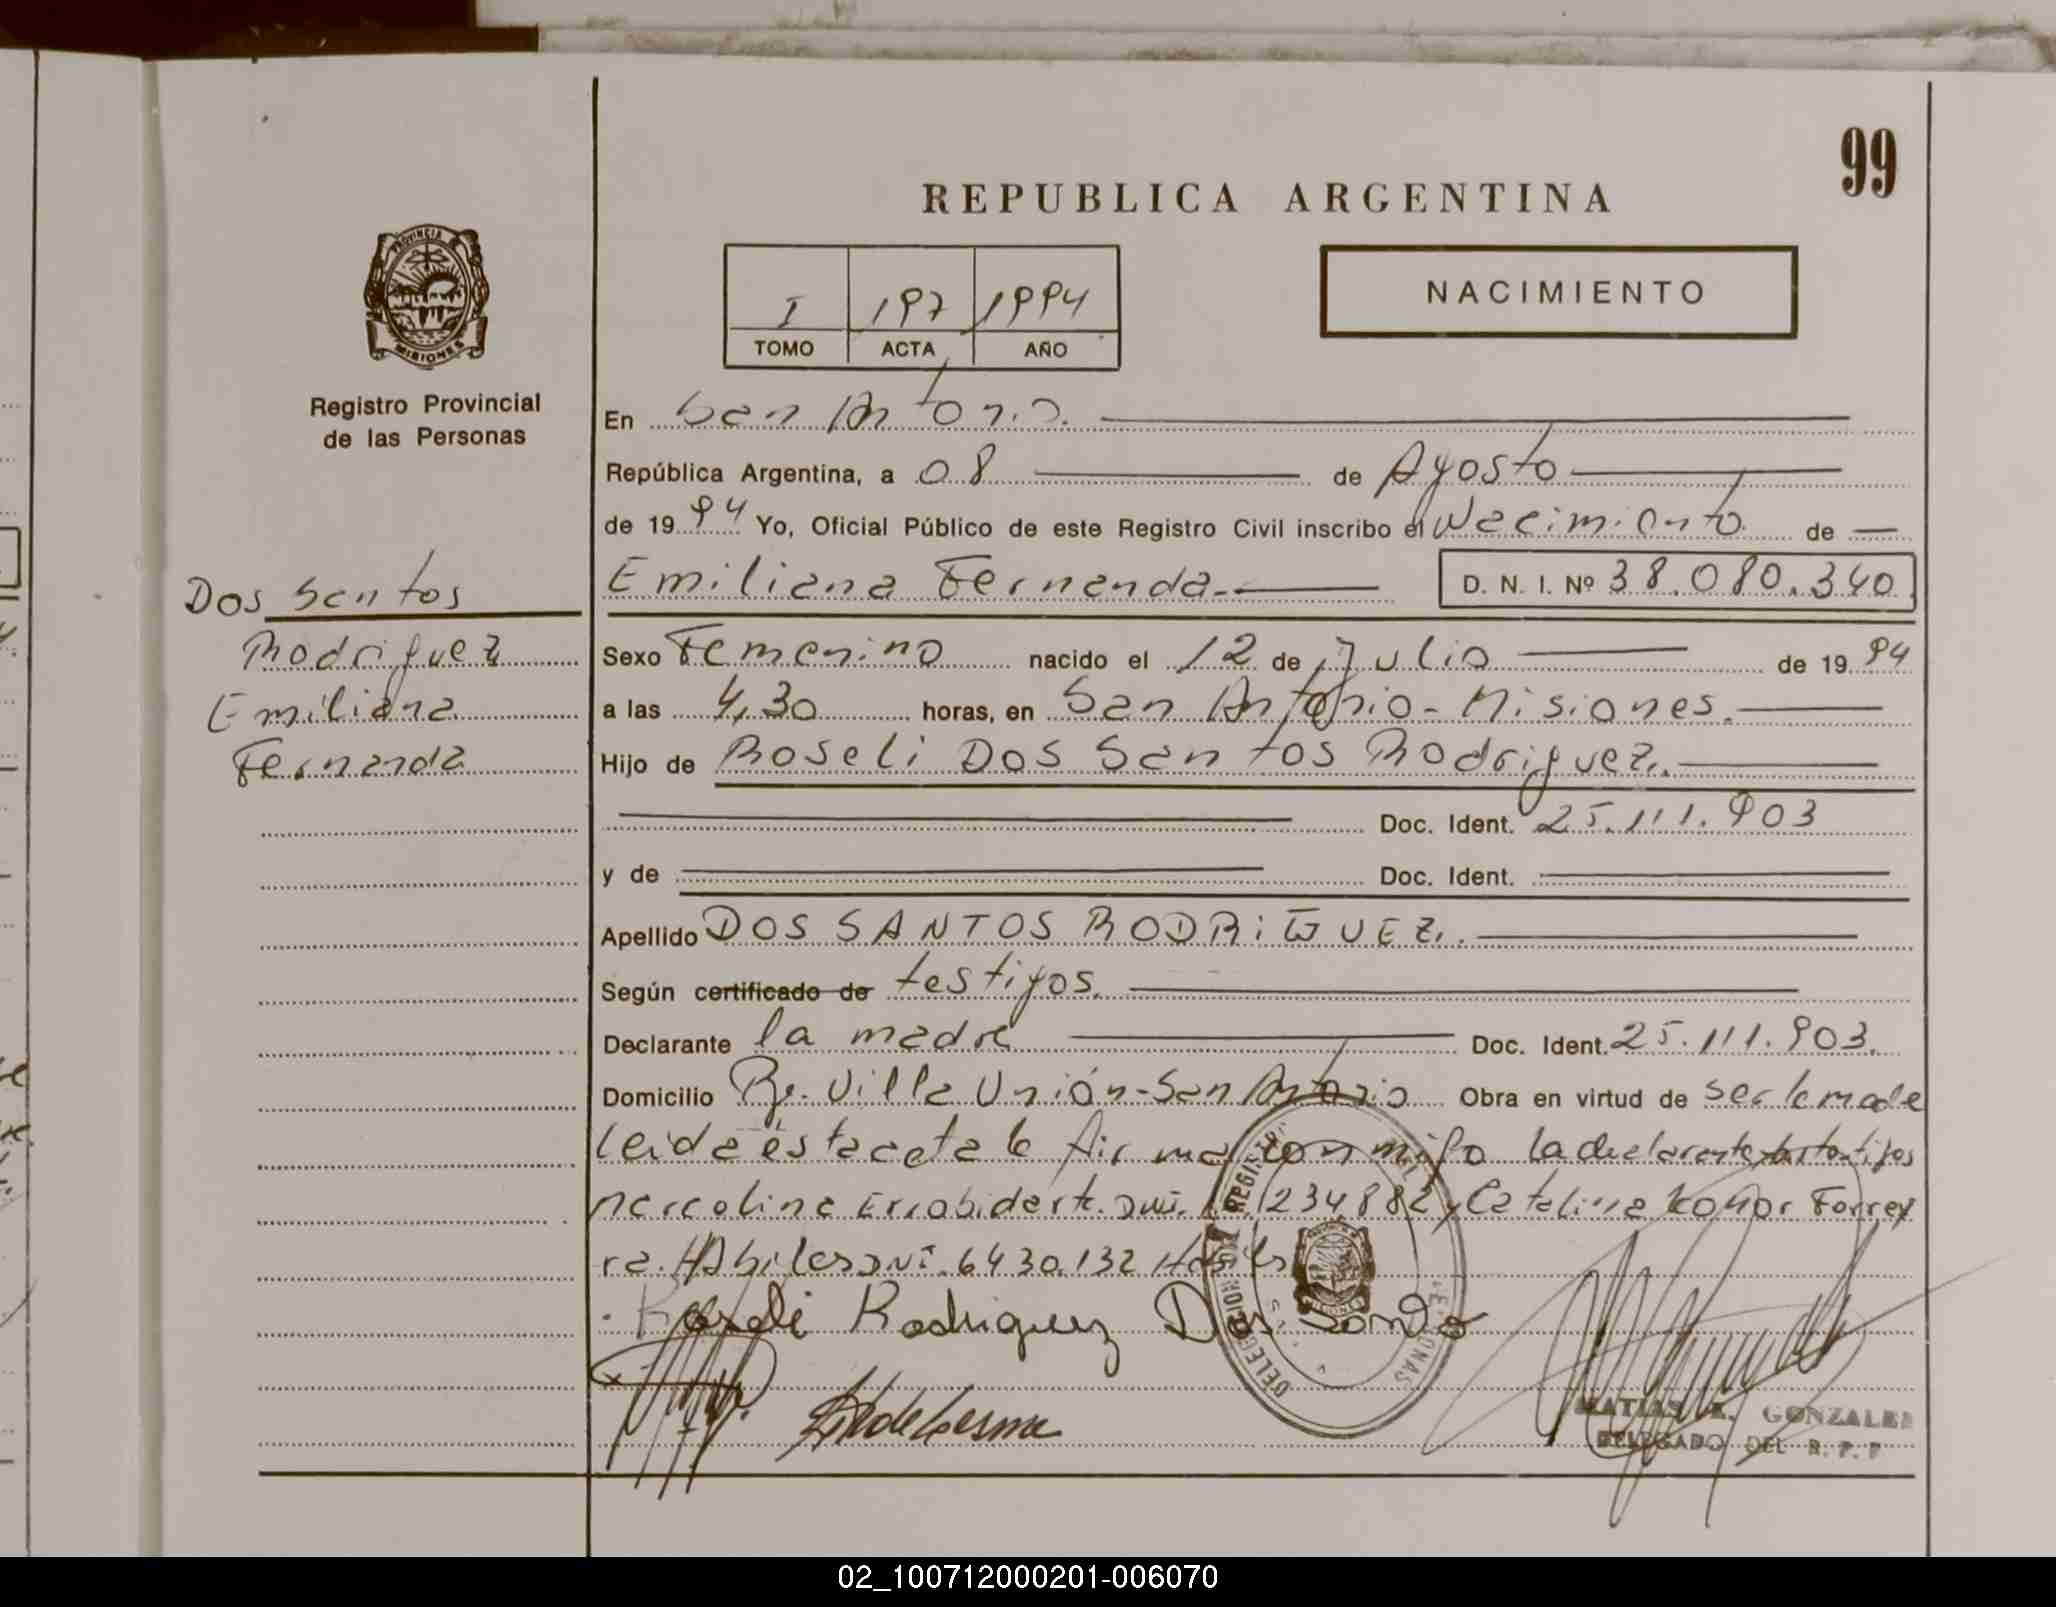 99
REPUBLICA ARGENTINA
I 197 1994
TOMO ACTA AÑO
NACIMIENTO
PROVINCIA DE
MISIONES
Registro Provincial
de las Personas
Dos Santos
Rodriguez
Emiliana
Fernanda
En San Antonio.
República Argentina, a 08 de Agosto
de 1994 Yo, Oficial Público de este Registro Civil inscribo el Nacimiento de
Emiliana Fernanda.- D. N. I. Nº 38.080.340
Sexo Femenino nacido el 12 de Julio de 1994
a las 4,30 horas, en San Antonio - Misiones.
Hijo de Roseli Dos Santos Rodriguez.
Doc. Ident. 25.111.903
y de Doc. Ident.
Apellido DOS SANTOS RODRiGUEZ.
Según certificado de testigos.
Declarante la madre Doc. Ident. 25.111.903.
Domicilio Villa Unión-San Antonio Obra en virtud de ser la madre
Leida esta acta la firman conmigo la declarante testigos
Marcolina DNI. 234882 y Catalina Ferrey
ra. Habiles DNI. 6430.132
Roseli Rodriguez Dos Santo
DELEGACION REGISTRO PERSONAS
MATIAS R. GONZALEZ
DELEGADO DEL R. P. P
02_100712000201-006070